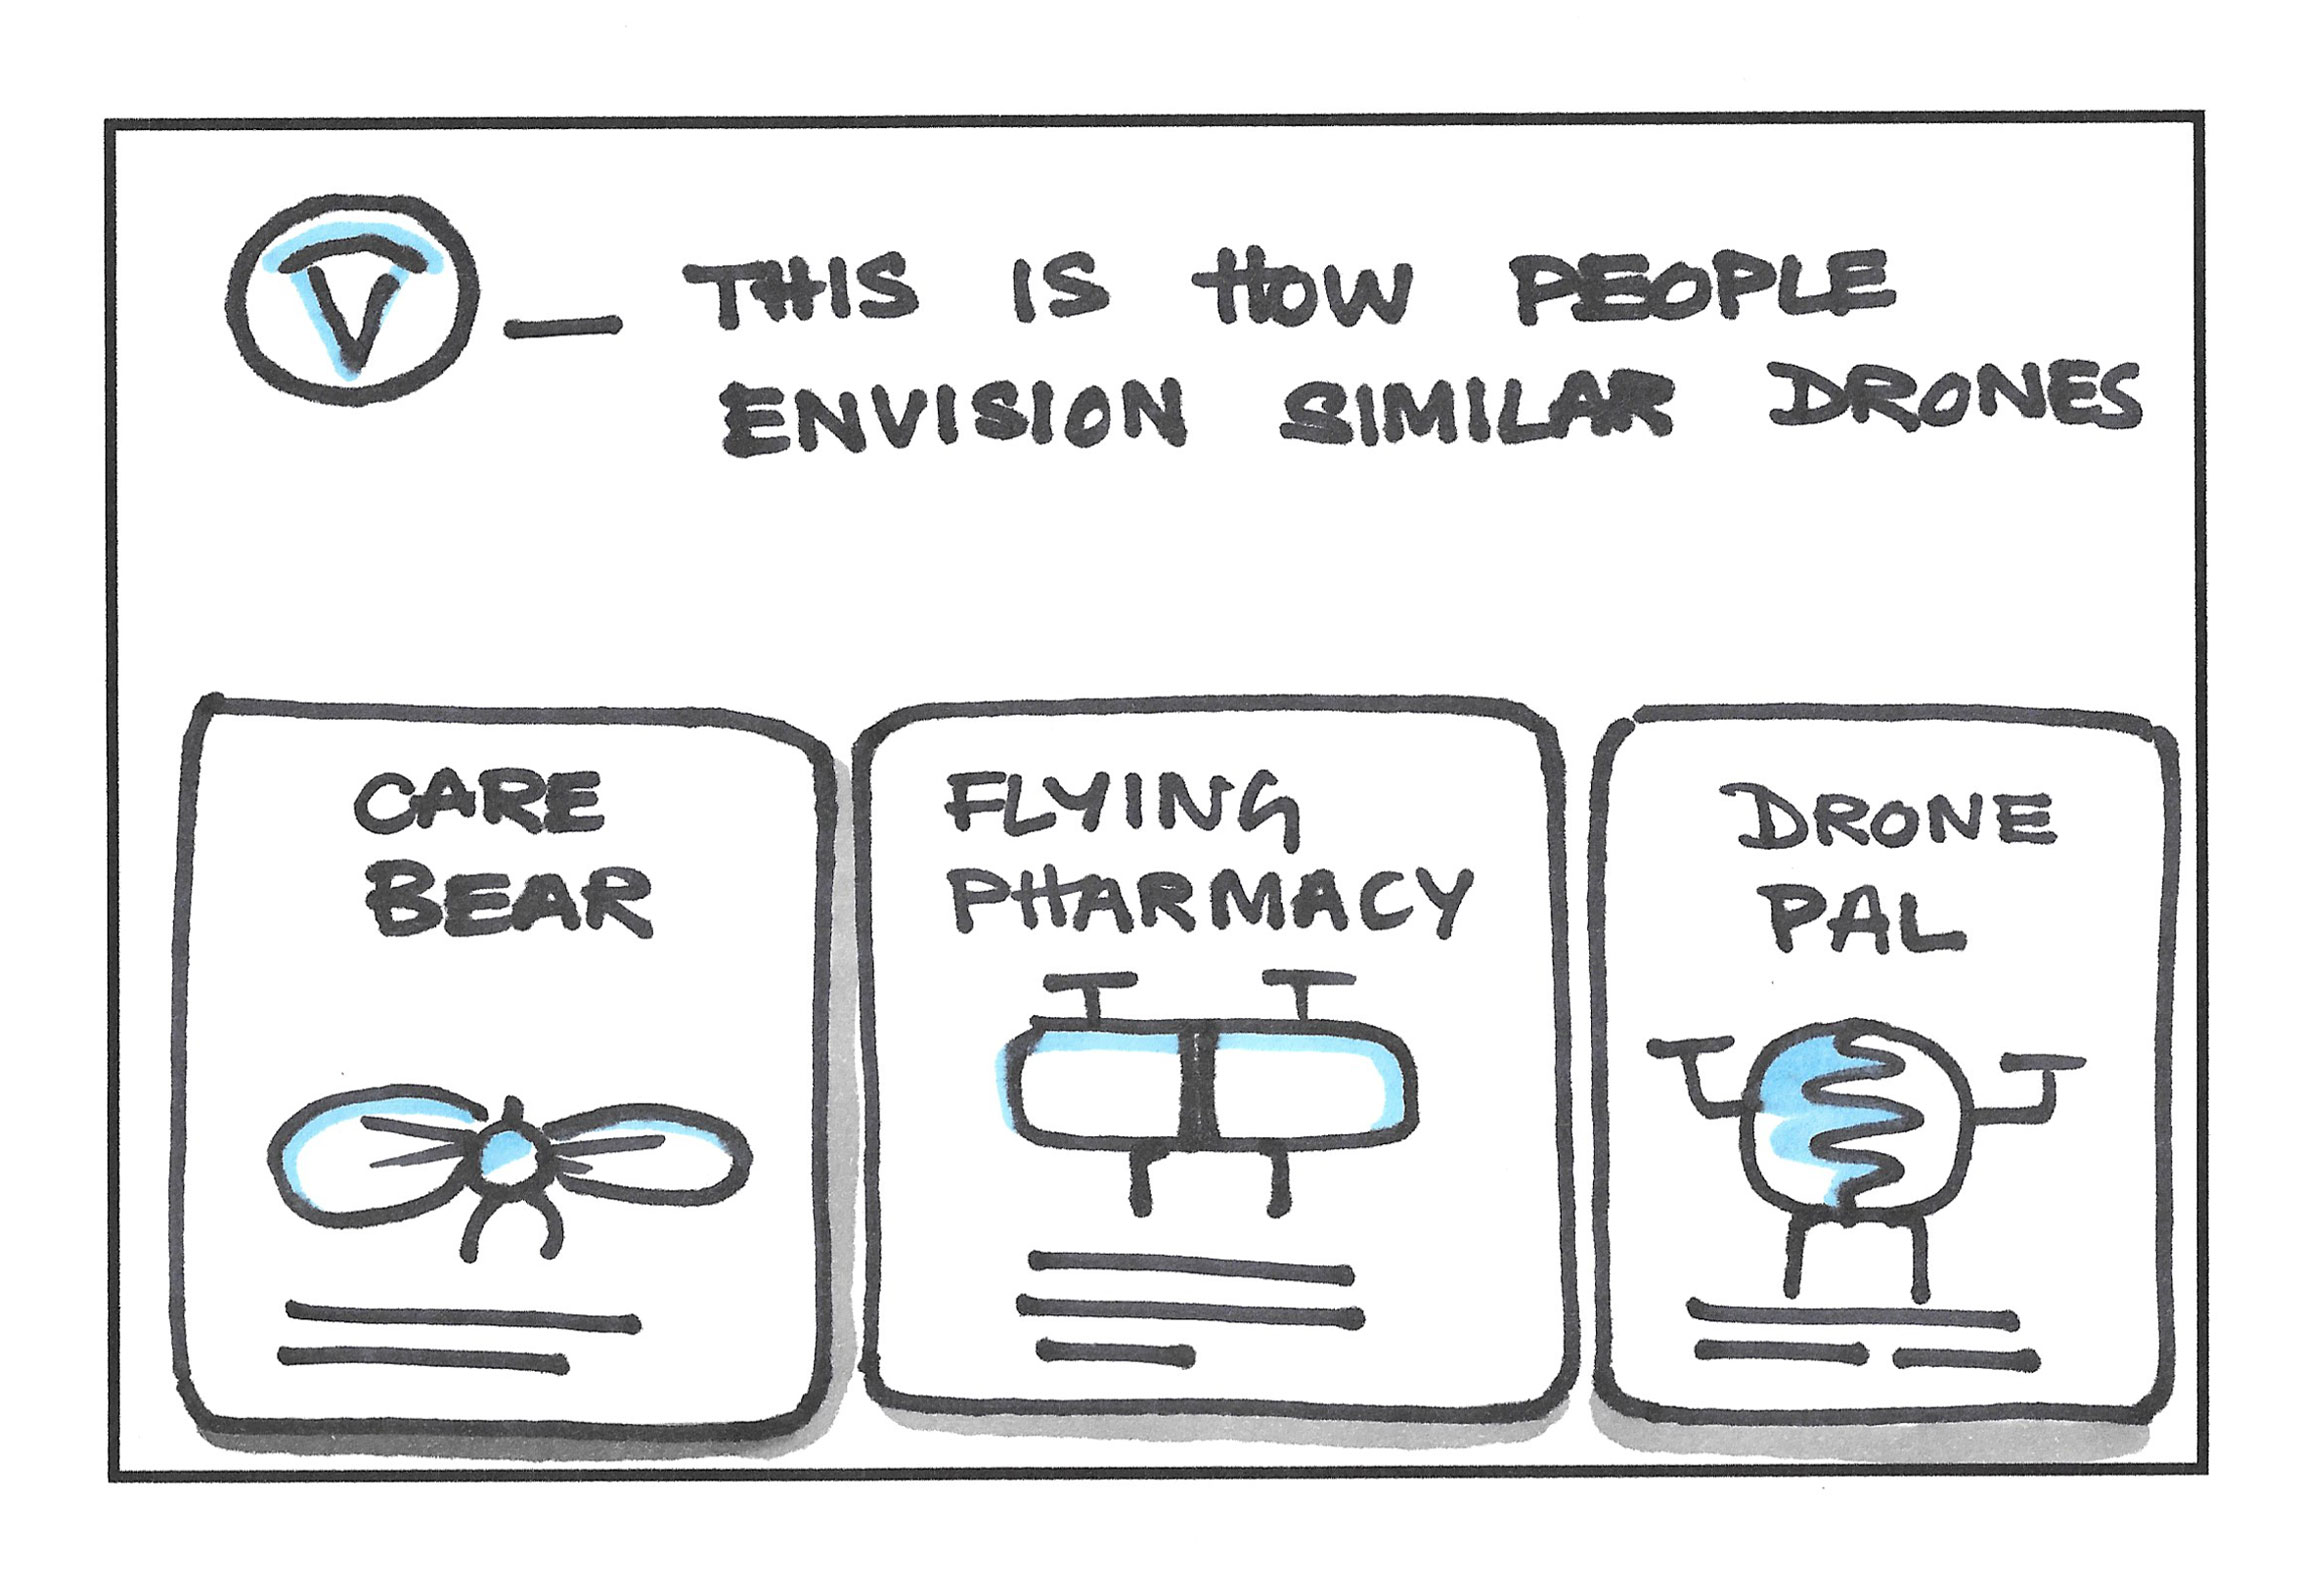 V — THIS IS HOW PEOPLE
ENVISION SIMILAR DRONES
CARE
BEAR
FLYING
PHARMACY
DRONE
PAL